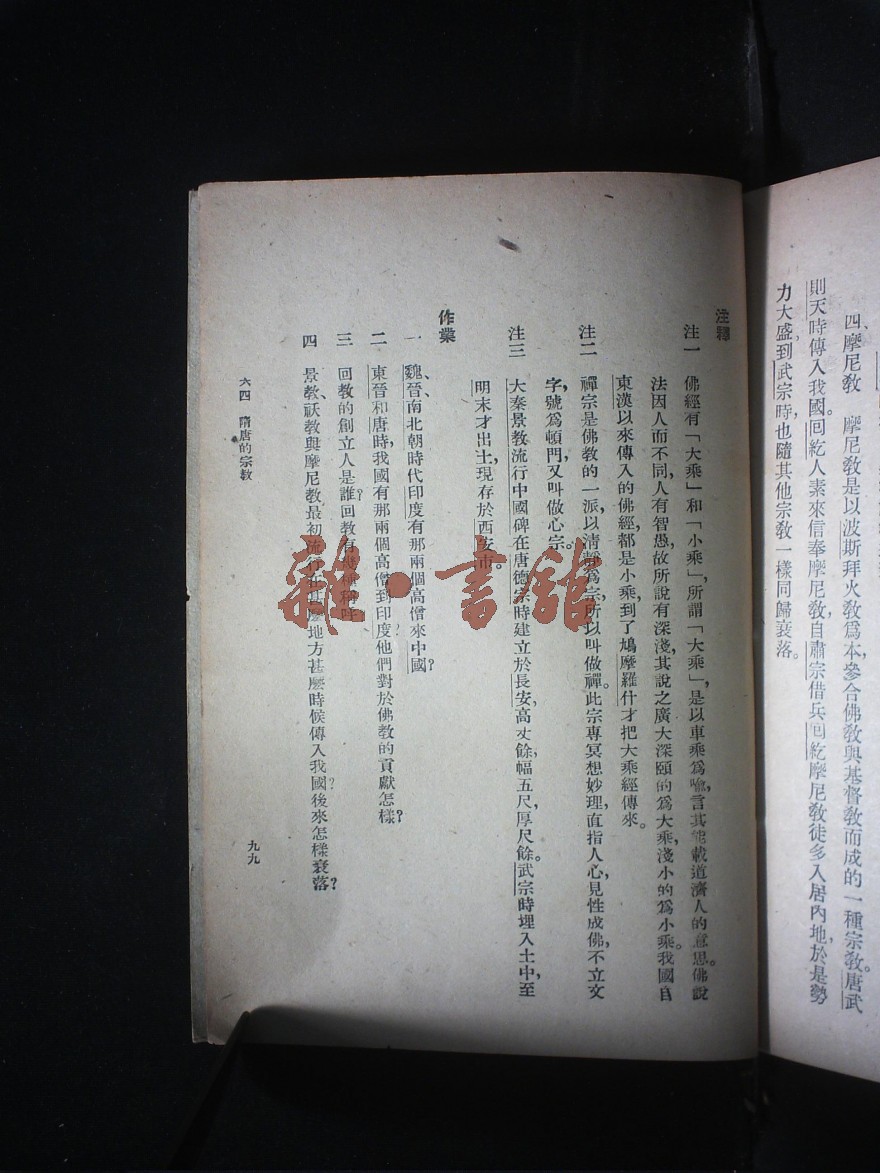 四、摩尼教　摩尼教是以波斯拜火教爲本，參合佛教與基督教而成的一種宗教。唐武
則天時傳入我國。回紇人素來信奉摩尼教，自肅宗借兵回紇，摩尼教徒多入居內地，於是勢
力大盛，到武宗時，也隨其他宗教一樣同歸衰落。
注釋
注一　佛經有「大乘」和「小乘」，所謂「大乘」，是以車乘爲喩，言其能載道濟人的意思。佛說
法因人而不同，人有智愚，故所說有深淺，其說之廣大深頤的爲大乘，淺小的爲小乘。我國自
東漢以來傳入的佛經，都是小乘，到了鳩摩羅什才把大乘經傳來。
注二　禪宗是佛教的一派，以清靜爲宗，所以叫做禪。此宗專冥想妙理，直指人心，見性成佛，不立文
字，號爲頓門，又叫做心宗。
注三　大秦景教流行中國碑在唐德宗時建立於長安，高丈餘，幅五尺，厚尺餘。武宗時埋入土中，至
明末才出土，現存於西安市。
作業
一　魏、晉、南北朝時代印度有那兩個高僧來中國？
二　東晉和唐時，我國有那兩個高僧到印度？他們對於佛教的貢獻怎樣？
三　回教的創立人是誰？回教有幾種稱呼？
四　景教、祆教與摩尼教最初流行在甚麼地方？甚麼時候傳入我國？後來怎樣衰落？
六四　隋唐的宗教
九九
雜·書館